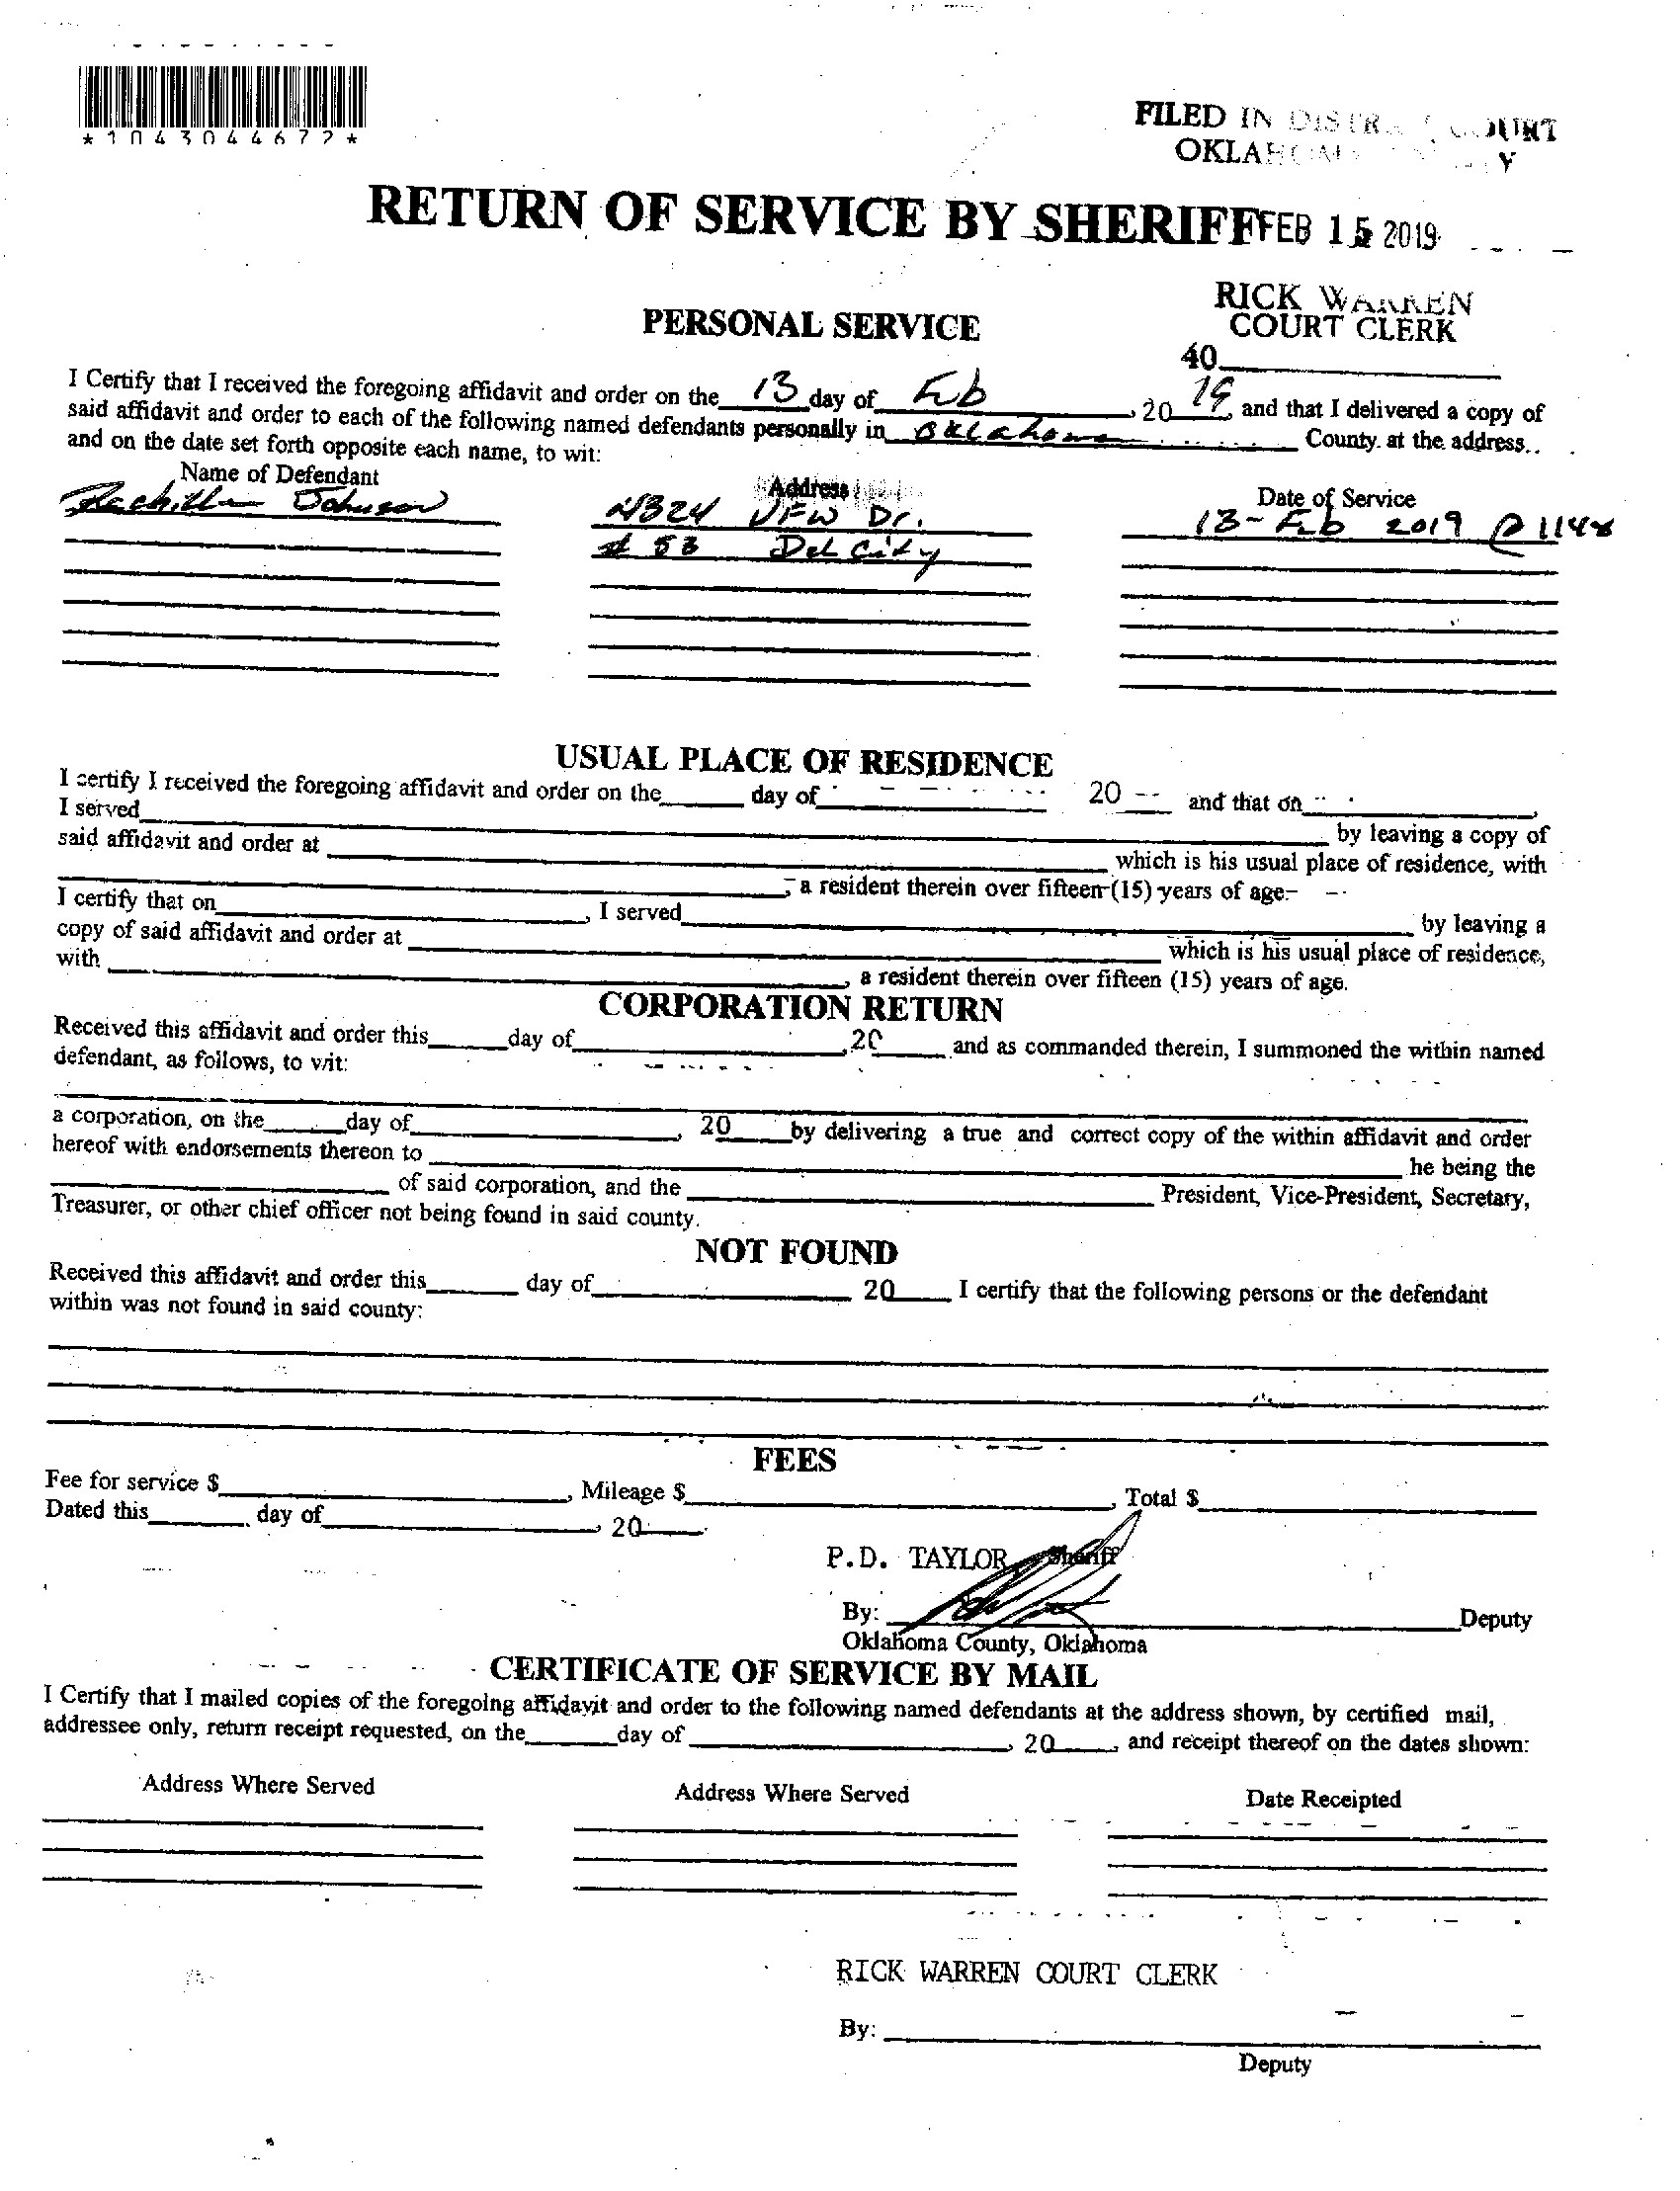 *1043044672*
FILED IN DISTRICT COURT
OKLAHOMA COUNTY
RETURN OF SERVICE BY SHERIFF
FEB 15 2019
RICK WARREN
COURT CLERK
40
PERSONAL SERVICE
I Certify that I received the foregoing affidavit and order on the 13 day of Feb, 20 19 and that I delivered a copy of
said affidavit and order to each of the following named defendants personally in Oklahoma County. at the address..
and on the date set forth opposite each name, to wit:
Name of Defendant Address Date of Service
Johnson 4324 VFW Dr. 13-Feb 2019 @ 1148
# 53 Del City
USUAL PLACE OF RESIDENCE
I certify I received the foregoing affidavit and order on the day of 20 and that on
I served by leaving a copy of
said affidavit and order at which is his usual place of residence, with
, a resident therein over fifteen (15) years of age.
I certify that on , I served by leaving a
copy of said affidavit and order at which is his usual place of residence,
with , a resident therein over fifteen (15) years of age.
CORPORATION RETURN
Received this affidavit and order this day of , 20 and as commanded therein, I summoned the within named
defendant, as follows, to wit:
a corporation, on the day of , 20 by delivering a true and correct copy of the within affidavit and order
hereof with endorsements thereon to he being the
of said corporation, and the President, Vice-President, Secretary,
Treasurer, or other chief officer not being found in said county.
NOT FOUND
Received this affidavit and order this day of 20 I certify that the following persons or the defendant
within was not found in said county:
FEES
Fee for service $ , Mileage $ , Total $
Dated this day of , 20
P.D. TAYLOR, Sheriff
By: Deputy
Oklahoma County, Oklahoma
CERTIFICATE OF SERVICE BY MAIL
I Certify that I mailed copies of the foregoing affidavit and order to the following named defendants at the address shown, by certified mail,
addressee only, return receipt requested, on the day of , 20 , and receipt thereof on the dates shown:
Address Where Served Address Where Served Date Receipted
RICK WARREN COURT CLERK
By:
Deputy